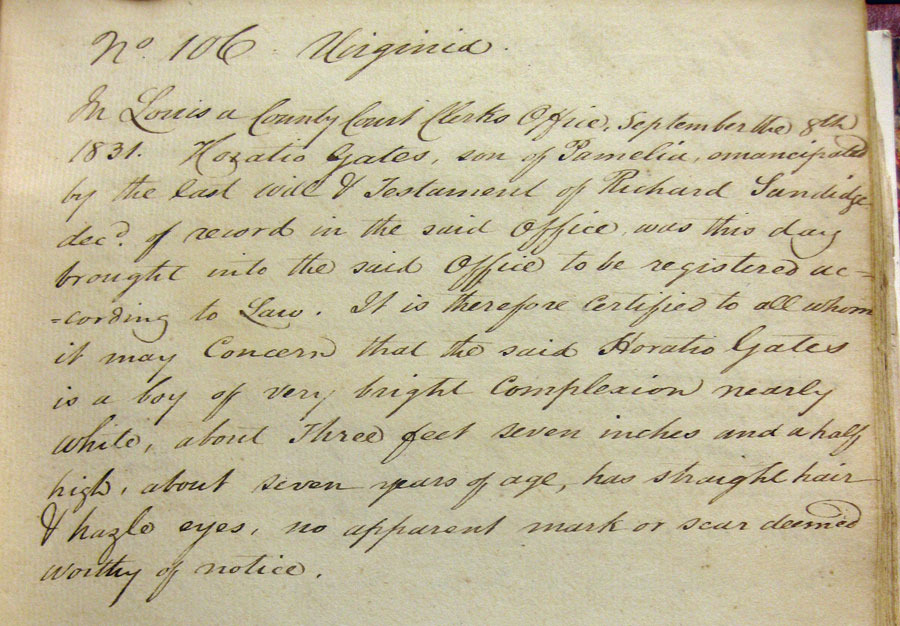 No 106 Virginia.
In Louisa County Court Clerks Office, September the 8th
1831. Horatio Gates, son of Pamelia, emancipated
by the last will & Testament of Richard Sandidge
decd. of record in the said Office, was this day
brought into the said Office to be registered ac=
=cording to Law. It is therefore Certified to all whom
it may Concern that the said Horatio Gates
is a boy of very bright Complexion nearly
white, about Three feet seven inches and a half
high, about seven years of age, has straight hair
& hazle eyes, no apparent mark or scar deemed
worthy of notice.